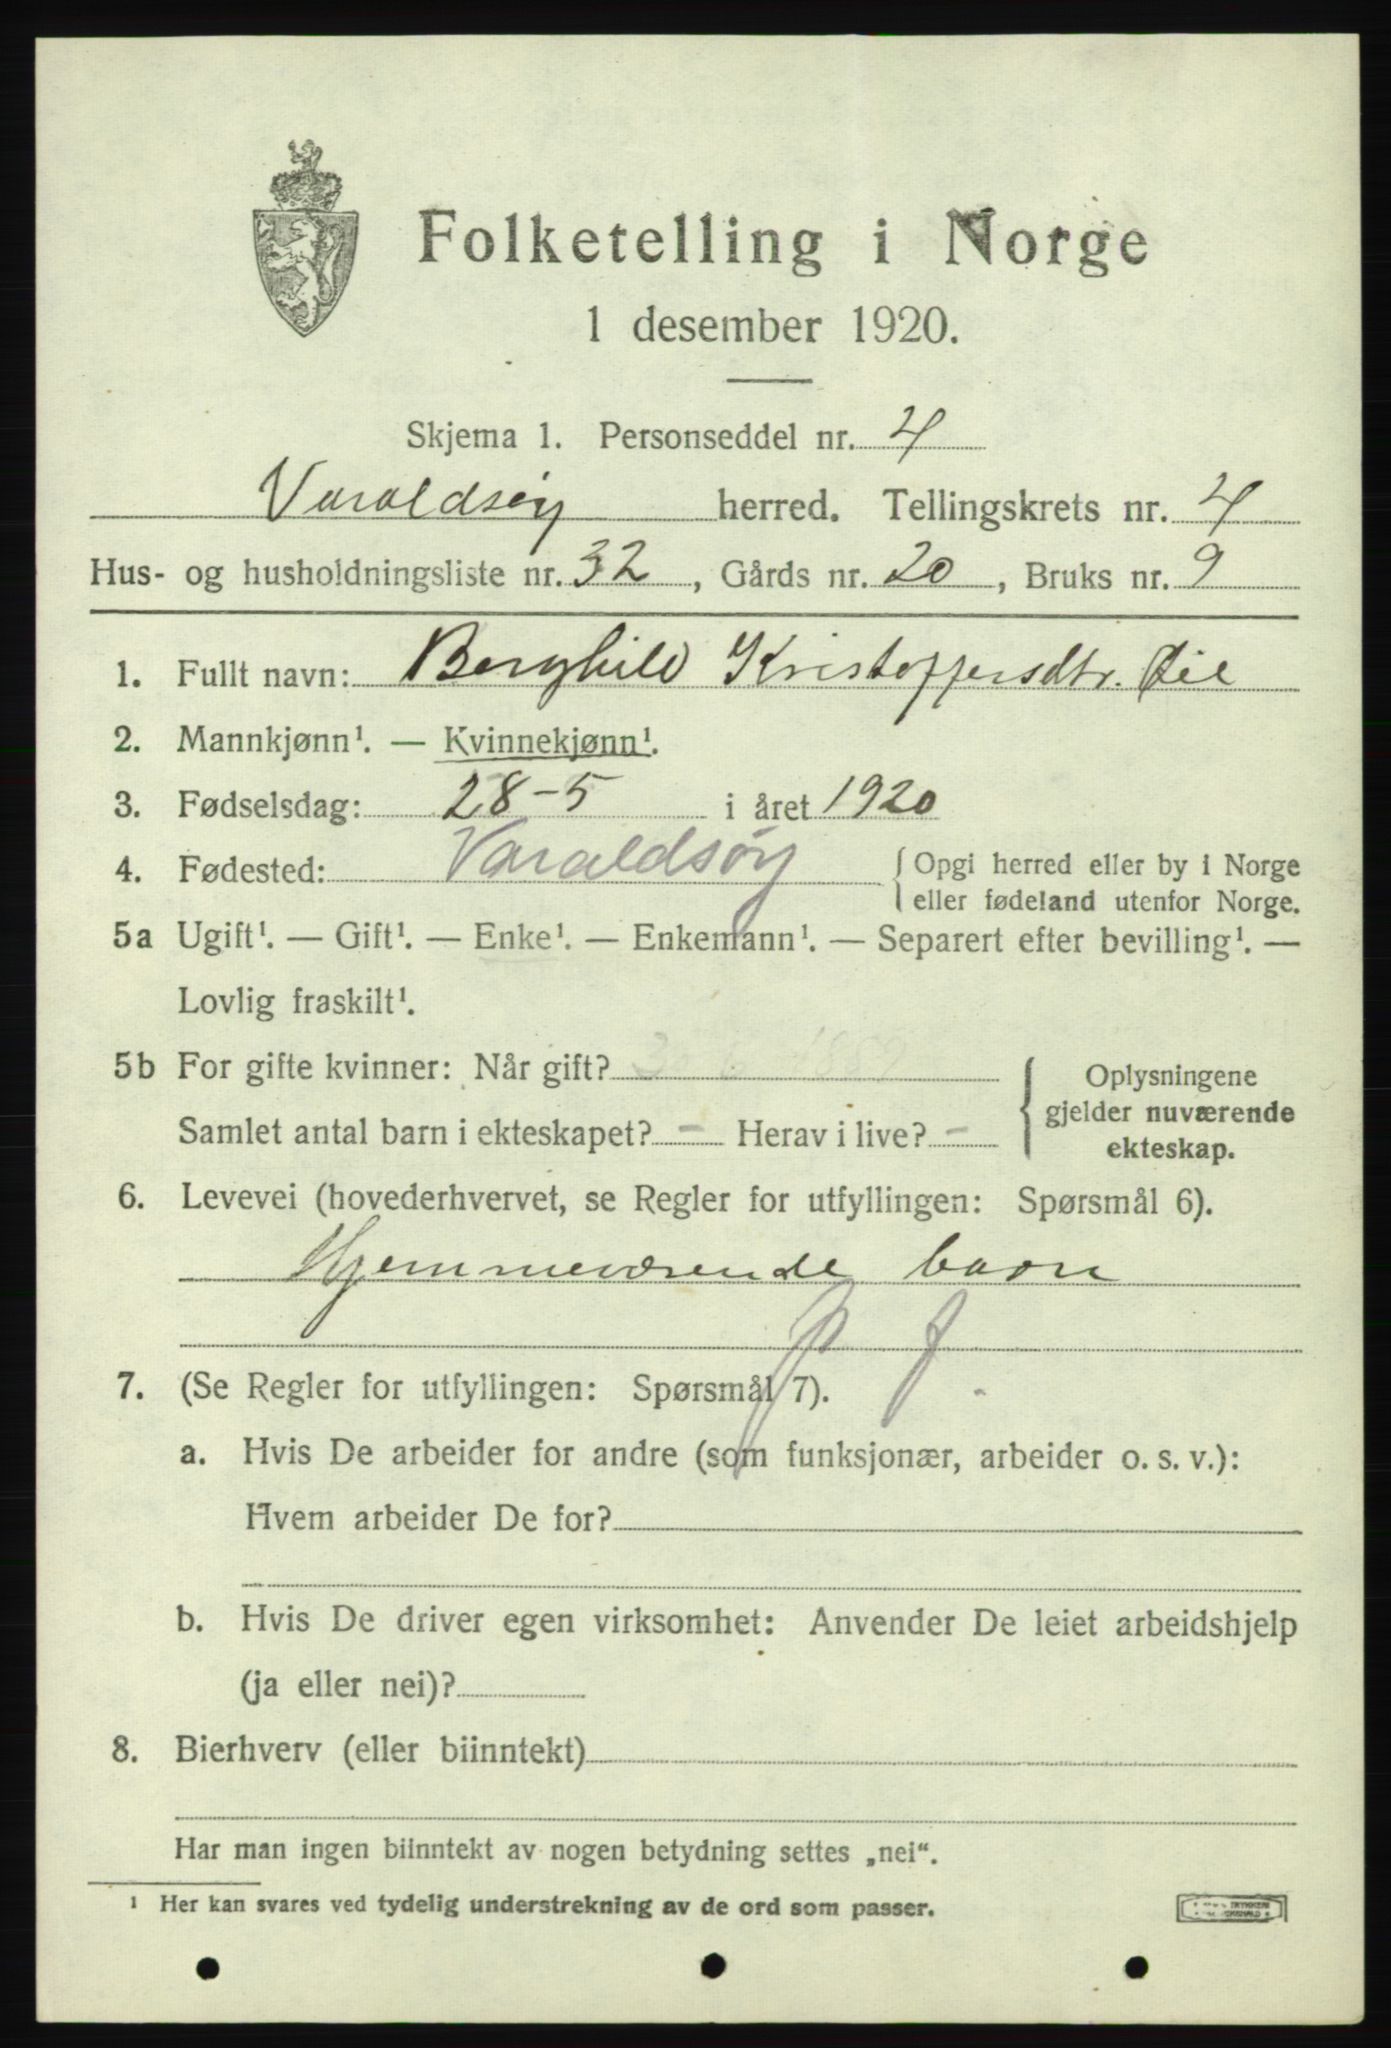 Folketelling i Norge
1 desember 1920.
Skjema 1. Personseddel nr. 4
Varaldsøy herred. Tellingskrets nr. 4
Hus- og husholdningsliste nr. 32, Gårds nr. 20, Bruks nr. 9
1. Fullt navn: Borghild Kristoffersdtr. Øie
2. Mannkjønn¹. — Kvinnekjønn¹.
3. Fødselsdag: 28-5 i året 1920
4. Fødested: Varaldsøy { Opgi herred eller by i Norge
eller fødeland utenfor Norge.
5a Ugift¹. — Gift¹. — Enke¹. — Enkemann¹. — Separert efter bevilling¹. —
Lovlig fraskilt¹.
5b For gifte kvinner: Når gift? 1889
Samlet antal barn i ekteskapet? - Herav i live? -
{ Oplysningene
gjelder nuværende
ekteskap.
6. Levevei (hovederhvervet, se Regler for utfyllingen: Spørsmål 6).
Hjemmeværende barn
7. (Se Regler for utfyllingen: Spørsmål 7).
a. Hvis De arbeider for andre (som funksjonær, arbeider o. s. v.):
Hvem arbeider De for?
b. Hvis De driver egen virksomhet: Anvender De leiet arbeidshjelp
(ja eller nei)?
8. Bierhverv (eller biinntekt)
Har man ingen biinntekt av nogen betydning settes „nei“.
¹ Her kan svares ved tydelig understrekning av de ord som passer.